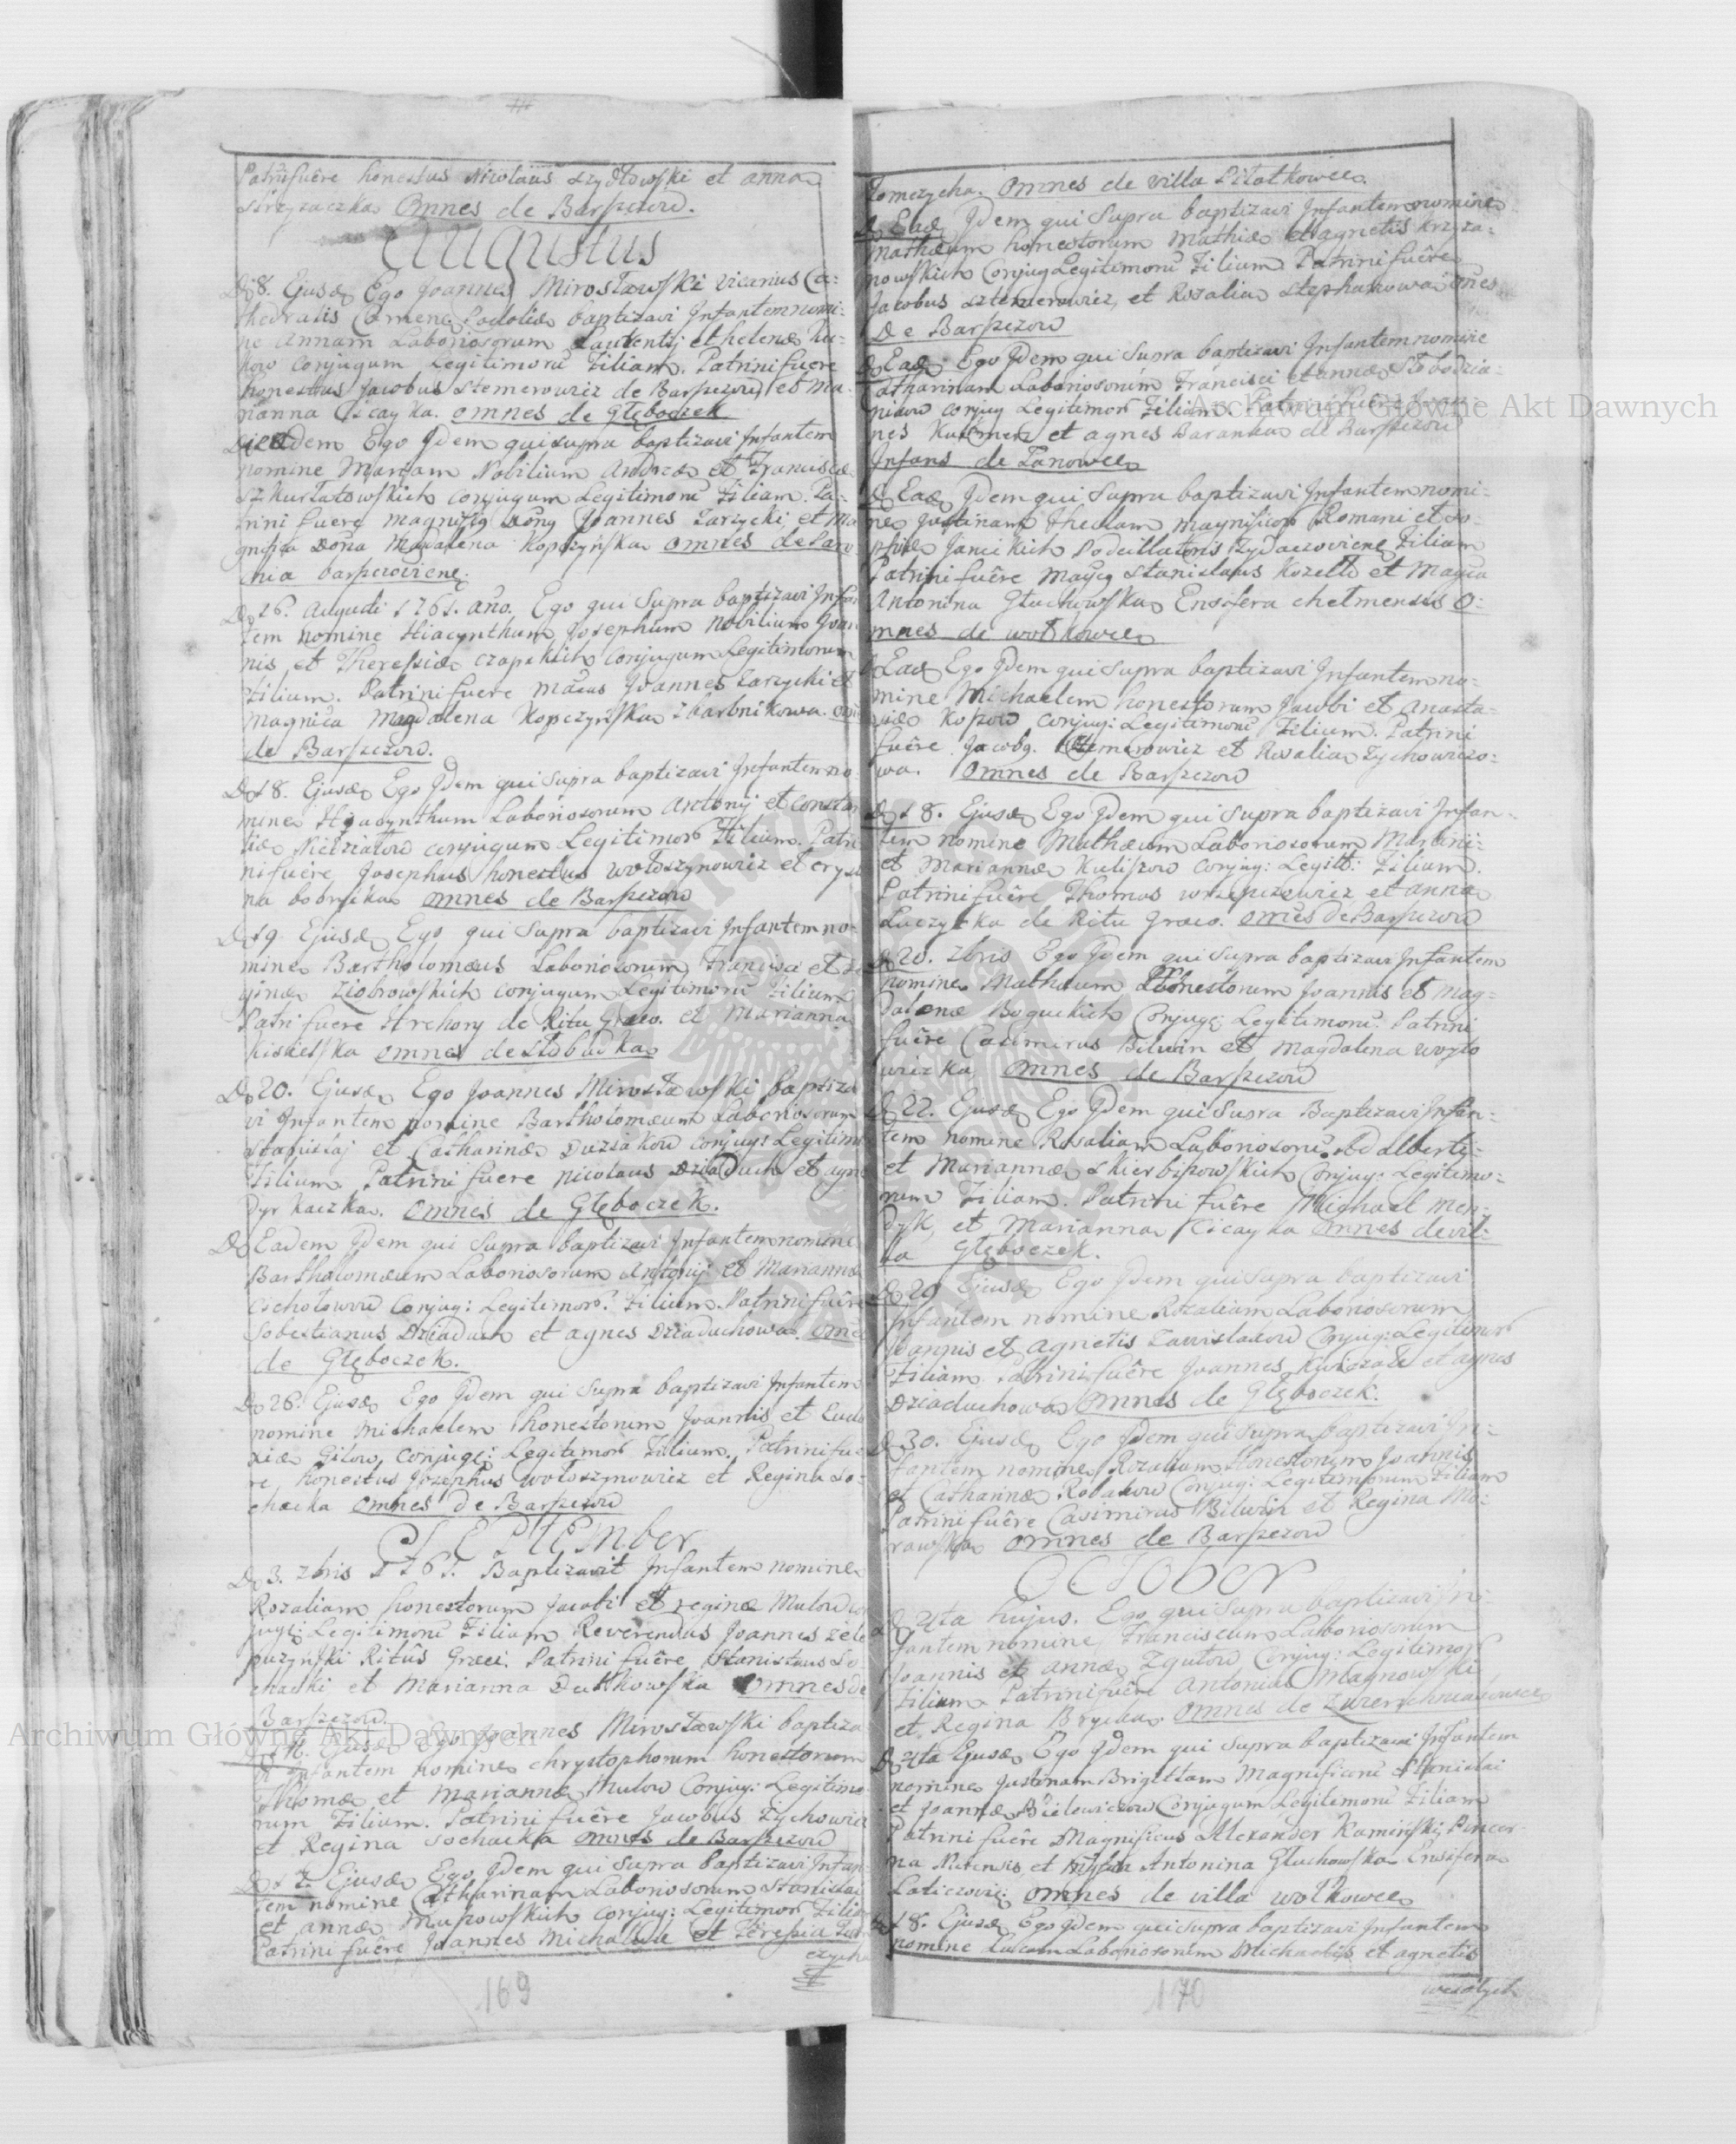 Patrini fuêre honestus Nicolaus Szydłowski et anna
Omnes de Barszczow.
Augustus
D 8. Ejusd Ego Joannes Mirosławski vicarius Ca-
thedralis Camene Podoliæ baptizavi Infantem nomi-
ne Annam Laboriosorum Laurentij et helenæ
conjugum Legitimoru Filiam. Patrini fuere
honestus Jacobus Szemerowicz de Barszczow et Ma-
rianna Cicayka. omnes de Głęboczek
Die eadem Ego Idem qui supra baptizavi Infantem
nomine Mariam Nobilium Andreæ et Francisca
conjugum Legitimoru Filiam. Pa-
trini fuere Joannes Zarzycki et Ma
gnifica Dona Magdalena Kopczyńska omnes de
barszczoviene.
D 16. Augusti 1761. año. Ego qui Supra baptizavi Infan
tem nomine Hiacynthum Josephum Nobilium Joan
nis et Theressiæ Czapskich conjugum Legitimorum
Filium. Patrini fuere Joannes Zarzycki et
Magnica Magdalena Kopczyńska Zbarbnikowa.
de Barszczow.
D 18. Ejusd Ego Idem qui supra baptizavi Infantem no-
mine Hyacynthum Laboriosorum Antonij et Constan
tiæ conjugum Legitimoru Filium. Patri
ni fuêre Josephus honestus Wołoszynowicz et crysti
na bobrska omnes de Barszczow
D 19 Ejusd Ego qui supra baptizavi Infantem no-
mine Bartholomæus Laboriosorum Francisci et Re
ginæ Ziobrowskich conjugum Legitimoru Filium
Patri fuere Hrehory de Ritu Græco. et Marianna
Kiskielska omnes de Słobudka
D 20. Ejusd Ego Joannes Mirosławski baptiza
vi Infantem nomine Bartholomæum Laboriosorum
Stanislaj et Catharinæ conjug: Legitim
Filium Patrini fuere Nicolaus Dziaduch et agne
Dyrkaczka. Omnes de Głęboczek.
D Eadem Idem qui supra baptizavi Infantem nomine
Bartholomæum Laboriosorum Antonij et Mariannæ
Cichołowiw Conjug: Legitimoru. Filium. Patrini fuêre
Sobestianus Dziaduch et agnes Dziaduchowa. omes
de Głęboczek.
D 26. Ejusd Ego Idem qui supra baptizavi Infantem
nomine Michaelem honestorum Joannis et Eudo
xiæ Gilow, conjug: Legitimoru Filium. Patrini fue-
re honestus Josephus Wołoszynowicz et Regina So-
chacka omnes de Barszczow
September
D 3. 7bris 1761. Baptizavit Infantem nomine
Rozaliam honestorum Jacobi et reginæ Mulow con
jug: Legitimoru Filiam Reverendus Joannes Zele
puzyński Ritûs Græci. Patrini fuêre Stanislaus So
chacki et Marianna Dutkowska omnes de
Barszczow.
Ejusd Ego Joannes Mirosławski baptiza
vi Infantem nomine chrystophorum honestorum
Thomæ et Mariannæ Mulow Conjug: Legitimo
rum Filium. Patrini fuêre Jacobus Zychowicz
et Regina Sochacka omnes de Barszczow
D 17. Ejusd Ego Idem qui supra baptizavi Infan-
tem nomine Catharinam Laboriosorum Stanislai
et annæ Mupowskich conjug: Legitimor Filia
Patrini fuêre Joannes Michalski et Teressia
czych
169
Tomczycha. Omnes de villa Piłatkowce.
D Ead Idem qui Supra baptizavi Infantem nomine
Mathæum honestorum Mathiæ et agnetis Krzyża-
nowskich Conjug Legitimoru Filium Patrini fuêre
Jacobus Sztemerowicz, et Rozalia Stephanowa omes
De Barszczow
D Ead Ego Idem qui Supra baptizavi Infantem nomine
Catharinam Laboriosorum Francisci et annæ Słobodzia-
niow conjug Legitimor Filiam. Patrini fuêre Joan-
nes et agnes Baranka de Barszczow
Infans de Łanowce
D Ead Idem qui Supra baptizavi Infantem nomi-
ne Justinam Theclam magnificor Romani et So-
phiæ Janickich Filiam
Patrini fuêre Stanislaus Kozełł et
Antonina Głuchowska Ensifera chelmensis O-
mnes de wołkowce
D Ead Ego Idem qui supra baptizavi Infantem no-
mine Michaelem honestorum Jacobi et Anasta-
siæ Kopow conjug: Legitimoru Filium. Patrini
fuêre Jacobg. Sztemerowicz et Rosalia Zychowiczo-
wa. Omnes de Barszczow
D 18. Ejusd Ego Idem qui supra baptizavi Infan-
tem nomine Mathæum Laboriosorum Martini
et Mariannæ Kuliszow conjug: Legitt: Filium.
Patrini fuêre Thomas et anna
Łuczyska de Ritu Græco. omes de Barszczow
D 20. 7bris Ego Idem qui supra baptizavi Infantem
nomine Mathæum Honestorum Joannis et Mag-
dalenæ Boguckich Conjug: Legitimoru. Patrini
fuêre Casimirus Biluin et Magdalena woyto
wiczka Omnes de Barszczow
D 22. Ejusd Ego Idem qui Supra Baptizavi Infan-
tem nomine Rosaliam Laboriosoru Adalberti-
et Mariannæ Skierbiszowskich Conjug: Legitimo-
rum Filiam. Patrini fuêre Michael Men-
dyk, et Marianna Cicayka omnes de vil-
la Głęboczek.
D 29 Ejusd Ego Idem qui supra baptizavi
Infantem nomine Rozaliam Laboriosorum
Joannis et Agnetis Zawislakow Conjug: Legitimor
Filiam Patrini fuêre Joannes et agnes
Dziaduchowa Omnes de Głęboczek.
D 30. Ejusd Ego Idem qui supra baptizavi In-
fantem nomine Rozaliam Honestorum Joannis
et Catharinæ Robakow Conjug: Legitimorum Filiam
Patrini fuêre Casimirus Biluin et Regina Mo-
rawska omnes de Barszczow
October
D 4ta hujus. Ego qui supra baptizavi In-
fantem nomine Franciscum Laboriosorum
Joannis et annæ Zgutow Conjug: Legitimor
Filium Patrini fuêre Antonius Magnowski
et Regina Brycka. omnes de
D 4ta Ejusd Ego Idem qui supra baptizavi Infantem
nomine Justinam Brigittam Magnificoru Stanislai
et Joannæ Bielowiczow Conjugum Legitimoru Filiam
Patrini fuêre Magnificus Alexander Kamiński Pincer-
na et Antonina Głuchowska Ensifera
omnes de villa wołkowce
D 18. Ejusd Ego Idem qui supra baptizavi Infantem
nomine Lucam Laboriosorum Michaelis et agnetis
wesołych
170
Archiwum Główne Akt Dawnych
Archiwum Główne Akt Dawnych